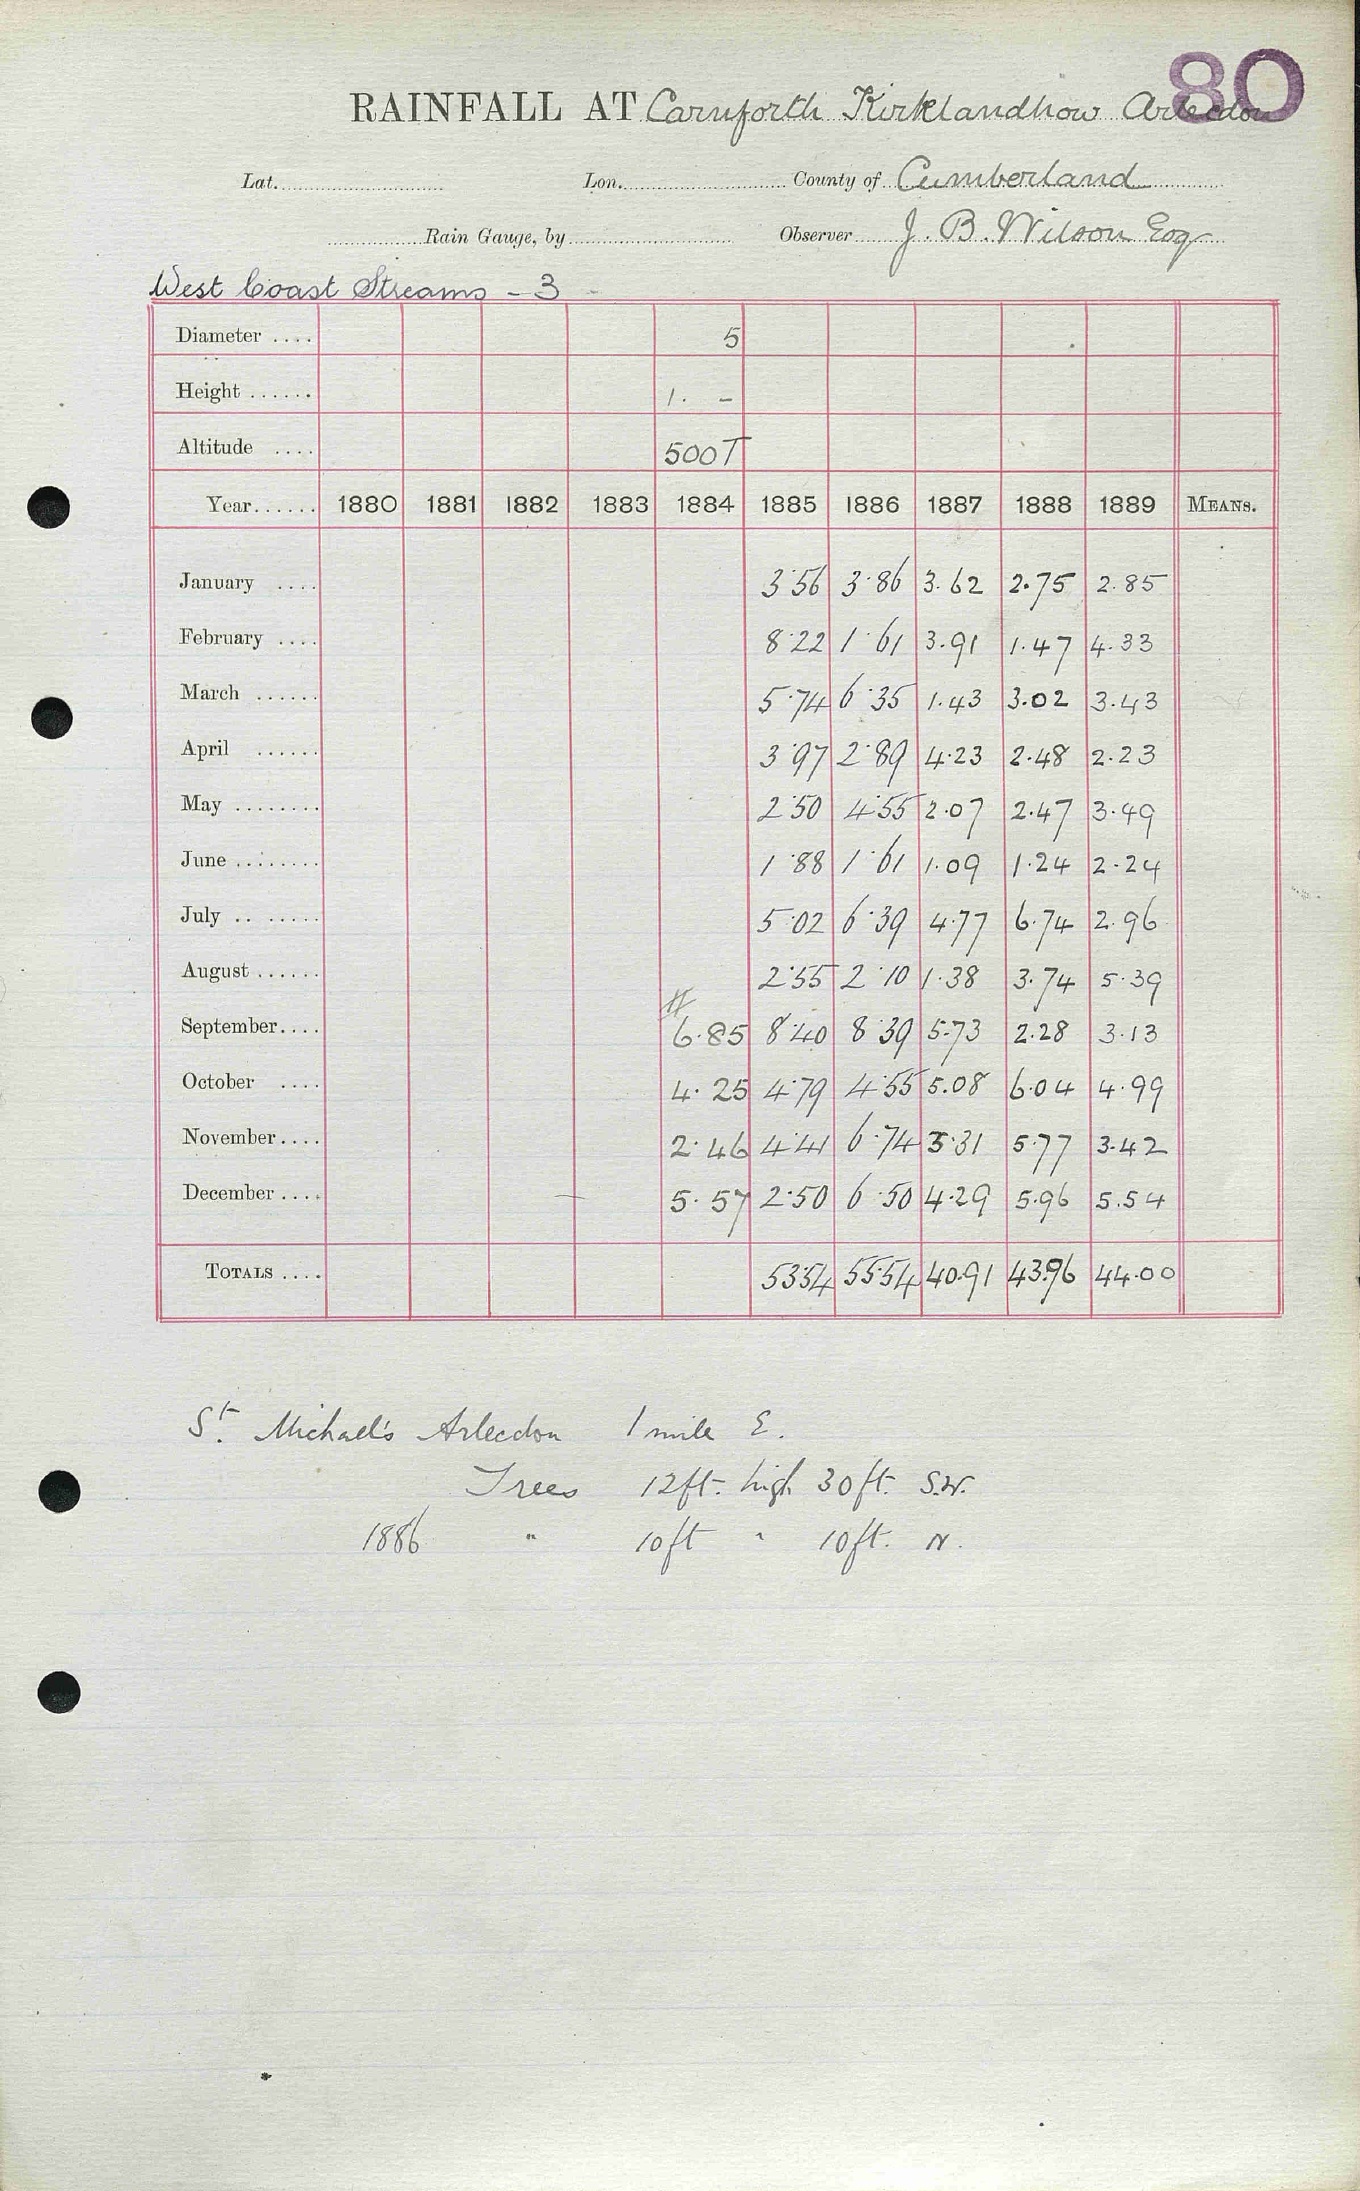 80
RAINFALL AT Carnforth Kirklandhow Arlecdon
Lat. Lon. County of Cumberland
Rain Gauge, by Observer J. B. Wilson Esq
West Coast Streams - 3
Diameter .... 5
Height ...... 1. -
Altitude .... 500T
Year...... 1880 1881 1882 1883 1884 1885 1886 1887 1888 1889 MEANS.
January .... 3.56 3.86 3.62 2.75 2.85
February .... 8.22 1.61 3.91 1.47 4.33
March ...... 5.74 6.35 1.43 3.02 3.43
April ...... 3.97 2.89 4.23 2.48 2.23
May ........ 2.50 4.55 2.07 2.47 3.49
June ........ 1.88 1.61 1.09 1.24 2.24
July .. ..... 5.02 6.39 4.77 6.74 2.96
August ...... 2.55 2.10 1.38 3.74 5.39
#
September.... 6.85 8.40 8.39 5.73 2.28 3.13
October .... 4.25 4.79 4.55 5.08 6.04 4.99
November.... 2.46 4.41 6.74 3.31 5.77 3.42
December .... 5.57 2.50 6.50 4.29 5.96 5.54
TOTALS .... 53.54 55.54 40.91 43.96 44.00
St. Michael's Arlecdon 1 mile E.
Trees 12ft. high 30ft. S.W.
1886 " 10ft " 10ft. N.